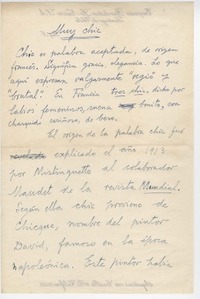 Muy chic
Chic es palabra aceptada, de origen
francés. Significa gracia, elegancia. Lo que
aquí expresa, vulgarmente "regio" y
"brutal". En Francia tres chic, dicho por
labios femeninos, suena bonito, con
chasquido cariñoso, de beso.
El origen de la palabra chic fue
explicado el año 1913
por Mistinguette al colaborador
Maudet de la revista Mundial.
Según ella chic proviene de
Chicque, nombre del pintor
David, famoso en la época
napoleónica. Este pintor había